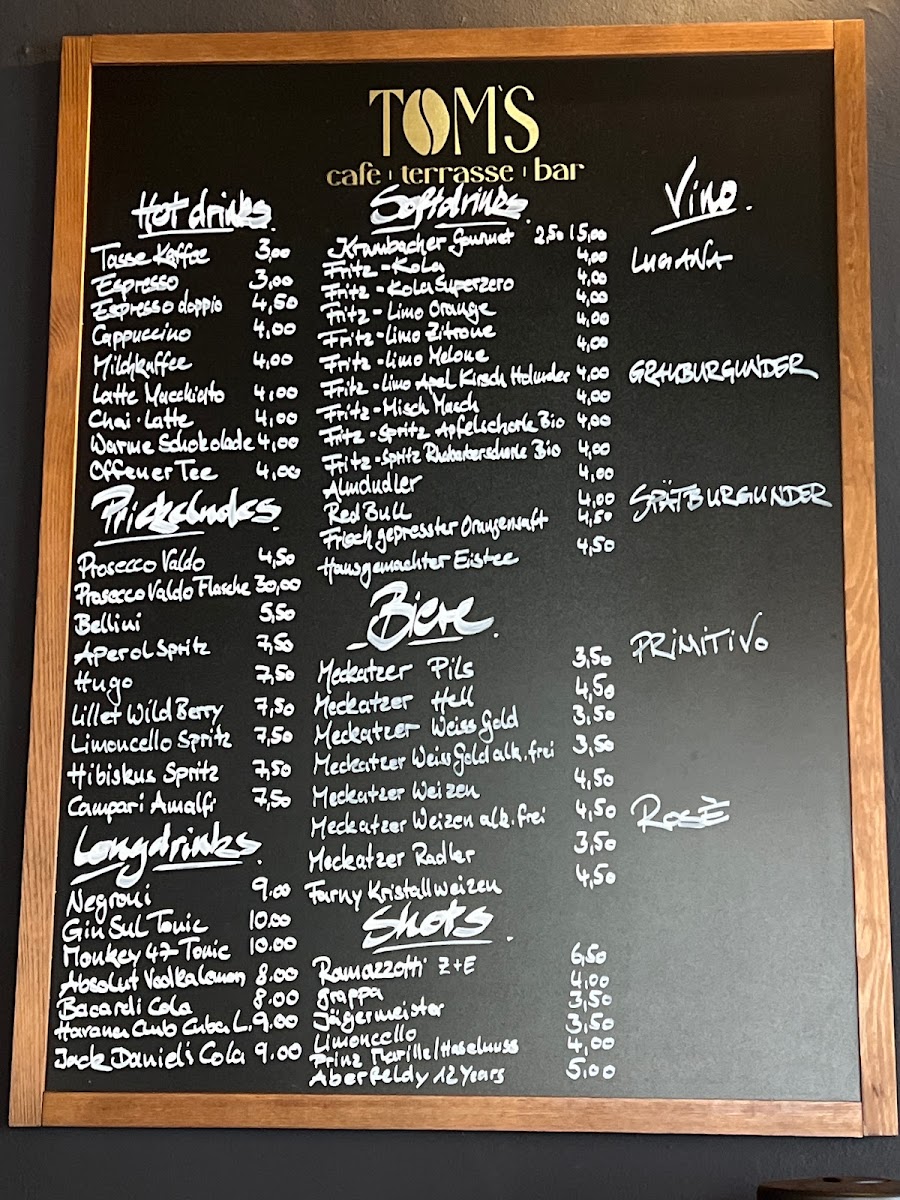 TOM'S
cafe | terrasse | bar
Hot drinks.
Tasse Kaffee 3,00
Espresso 3,00
Espresso doppio 4,50
Cappuccino 4,00
Milchkaffee 4,00
Latte Macchiato 4,00
Chai-Latte 4,00
Warme Schokolade 4,00
Offener Tee 4,00
Prickelndes.
Prosecco Valdo 4,50
Prosecco Valdo Flasche 30,00
Bellini 5,50
Aperol Spritz 7,50
Hugo 7,50
Lillet Wild Berry 7,50
Limoncello Spritz 7,50
Hibiskus Spritz 7,50
Campari Amalfi 7,50
Longdrinks.
Negroni 9.00
Gin Sul Tonic 10.00
Monkey 47 Tonic 10.00
Absolut Vodka Lemon 8.00
Bacardi Cola 8.00
Havanna Club Cuba L. 9.00
Jack Daniels Cola 9.00
Softdrinks.
Krambacher Gourmet 2,50 | 5,00
Fritz-Kola 4,00
Fritz-Kola Superzero 4,00
Fritz-Limo Orange 4,00
Fritz-Limo Zitrone 4,00
Fritz-Limo Melone 4,00
Fritz-Limo Apel Kirsch Holunder 4,00
Fritz-Misch Masch 4,00
Fritz-Spritz Apfelschorle Bio 4,00
Fritz-Spritz Rhabarberschorle Bio 4,00
Almdudler 4,00
Red Bull 4,00
Frisch gepresster Orangensaft 4,50
Hausgemachter Eistee 4,50
Biere.
Meckatzer Pils 3,50
Meckatzer Hell 4,50
Meckatzer Weiss Gold 3,50
Meckatzer Weiss Gold alk. frei 3,50
Meckatzer Weizen 4,50
Meckatzer Weizen alk. frei 4,50
Meckatzer Radler 3,50
Farny Kristallweizen 4,50
Shots.
Ramazzotti Z+E 6,50
grappa 4,00
Jägermeister 3,50
Limoncello 3,50
Prinz Marille/Haselnuss 4,00
Aberfeldy 12 Years 5,00
Vino.
LUGANA
GRAUBURGUNDER
SPÄTBURGUNDER
PRIMITIVO
ROSÈ